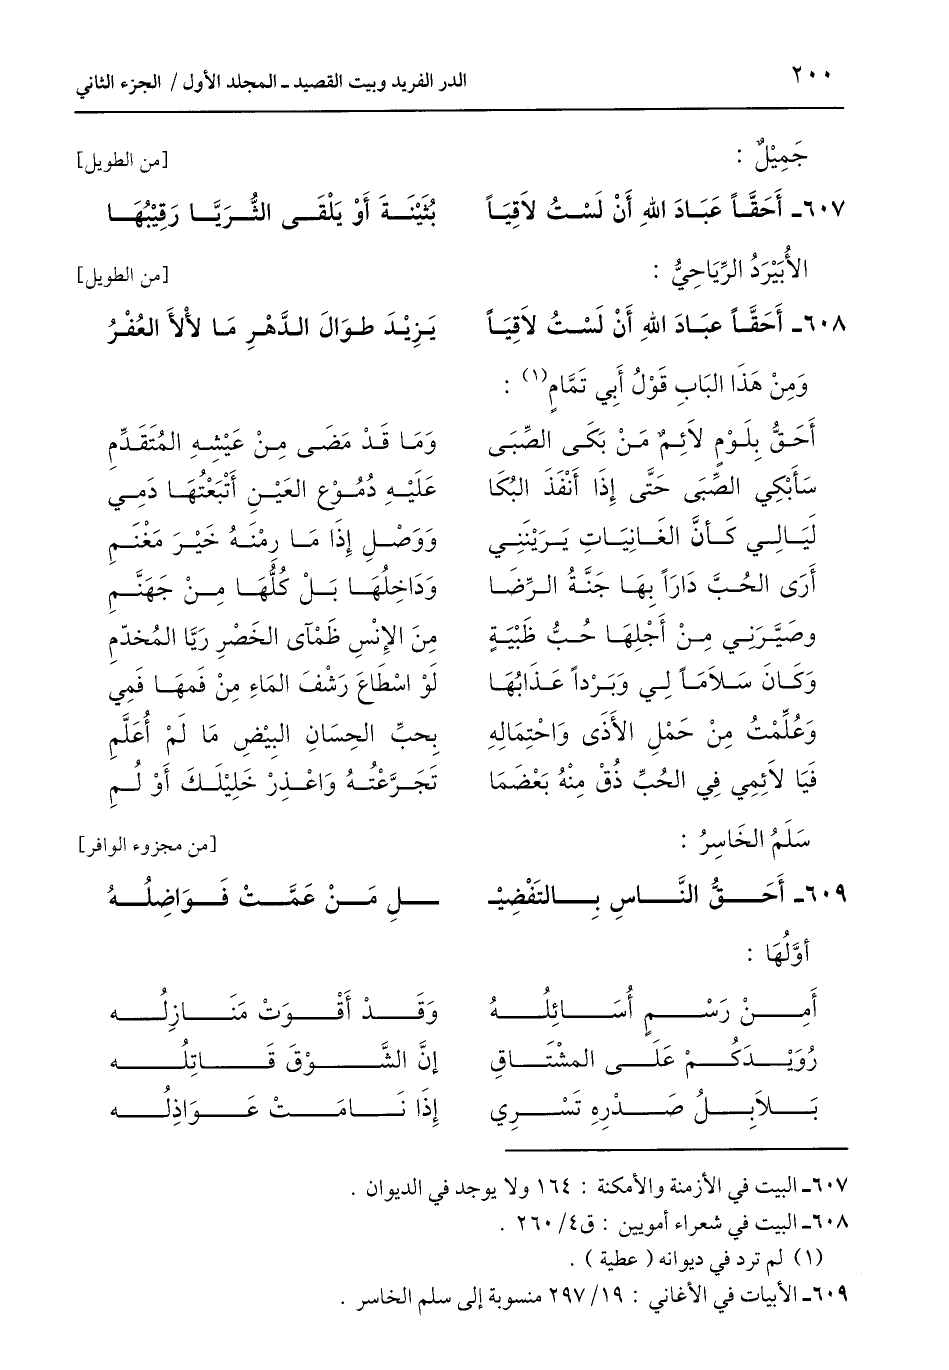 ٢٠٠ الدر الفريد وبيت القصيد ـ المجلد الأول / الجزء الثاني
جَمِيْلٌ : [من الطويل]
٦٠٧ـ أَحَقَّاً عَبَادَ اللهِ أَنْ لَسْتُ لاَقِيَاً بُثَيْنَةَ أَوْ يَلْقَى الثُّرَيَّا رَقِيْبُهَا
الأُبَيْرَدُ الرِّيَاحِيُّ : [من الطويل]
٦٠٨ـ أَحَقَّاً عبَادَ اللهِ أَنْ لَسْتُ لاَقِيَاً يَزِيْدَ طوَالَ الدَّهْرِ مَا لأْلأَ العُفْرُ
وَمِنْ هَذَا البَابِ قَوْلُ أَبِي تَمَّامٍ(١) :
أَحَقُّ بِلَوْمٍ لاَئِمٌ مَنْ بَكَى الصِّبَى وَمَا قَدْ مَضَى مِنْ عَيْشِهِ المُتَقَدِّمِ
سَأَبْكِي الصِّبَى حَتَّى إِذَا أَنْفَذَ البُكَا عَلَيْهِ دُمُوْع العَيْنِ أَتْبَعْتُهَا دَمِي
لَيَالِي كَأَنَّ الغَانِيَاتِ يَرَيْنَنِي وَوَصْلِ إِذَا مَا رمْنَهُ خَيْرَ مَغْنَمِ
أَرَى الحُبَّ دَارَاً بِهَا جَنَّةُ الرِّضَا وَدَاخِلُهَا بَلْ كُلُّهَا مِنْ جَهَنَّمِ
وصَيَّرَنِي مِنْ أَجْلِهَا حُبُّ ظَبْيَةٍ مِنَ الإِنْسِ ظَمْآى الخَصْرِ رَيَّا المُخدّمِ
وَكَانَ سَلاَمَاً لِي وَبَرْداً عَذَابُهَا لَوْ اسْطَاعَ رَشْفَ المَاءِ مِنْ فَمِهَا فَمِي
وَعُلِّمْتُ مِنْ حَمْلِ الأَذَى وَاحْتِمَالِهِ بِحبِّ الحِسَانِ البِيْضِ مَا لَمْ أُعَلَّمِ
فَيَا لاَئِمِي فِي الحُبِّ ذُقْ مِنْهُ بَعْضَمَا تَجَرَّعْتُهُ وَاعْذِرْ خَلِيْلَكَ أَوْ لُمِ
سَلَمُ الخَاسِرُ : [من مجزوء الوافر]
٦٠٩ـ أَحَـقُّ النَّـاسِ بِـالتَفْضِيْـ ـلِ مَـنْ عَمَّـتْ فَـوَاضِلُـهُ
أَوَّلُهَا :
أَمِـنْ رَسْـمٍ أُسَـائِلُـهُ وَقَـدْ أَقْـوَتْ مَنَـازِلُـه
رُوَيْـدَكُـمْ عَلَـى المشْتَـاقِ إِنَّ الشَّـوْقَ قَـاتِلُـه
بَـلاَبِـلُ صَـدْرِهِ تَسْـرِي إِذَا نَـامَـتْ عَـوَاذِلُـه
٦٠٧ـ البيت في الأزمنة والأمكنة : ١٦٤ ولا يوجد في الديوان .
٦٠٨ـ البيت في شعراء أمويين : ق٤/ ٢٦٠ .
(١) لم ترد في ديوانه ( عطية ) .
٦٠٩ـ الأبيات في الأغاني : ١٩/ ٢٩٧ منسوبة إلى سلم الخاسر .